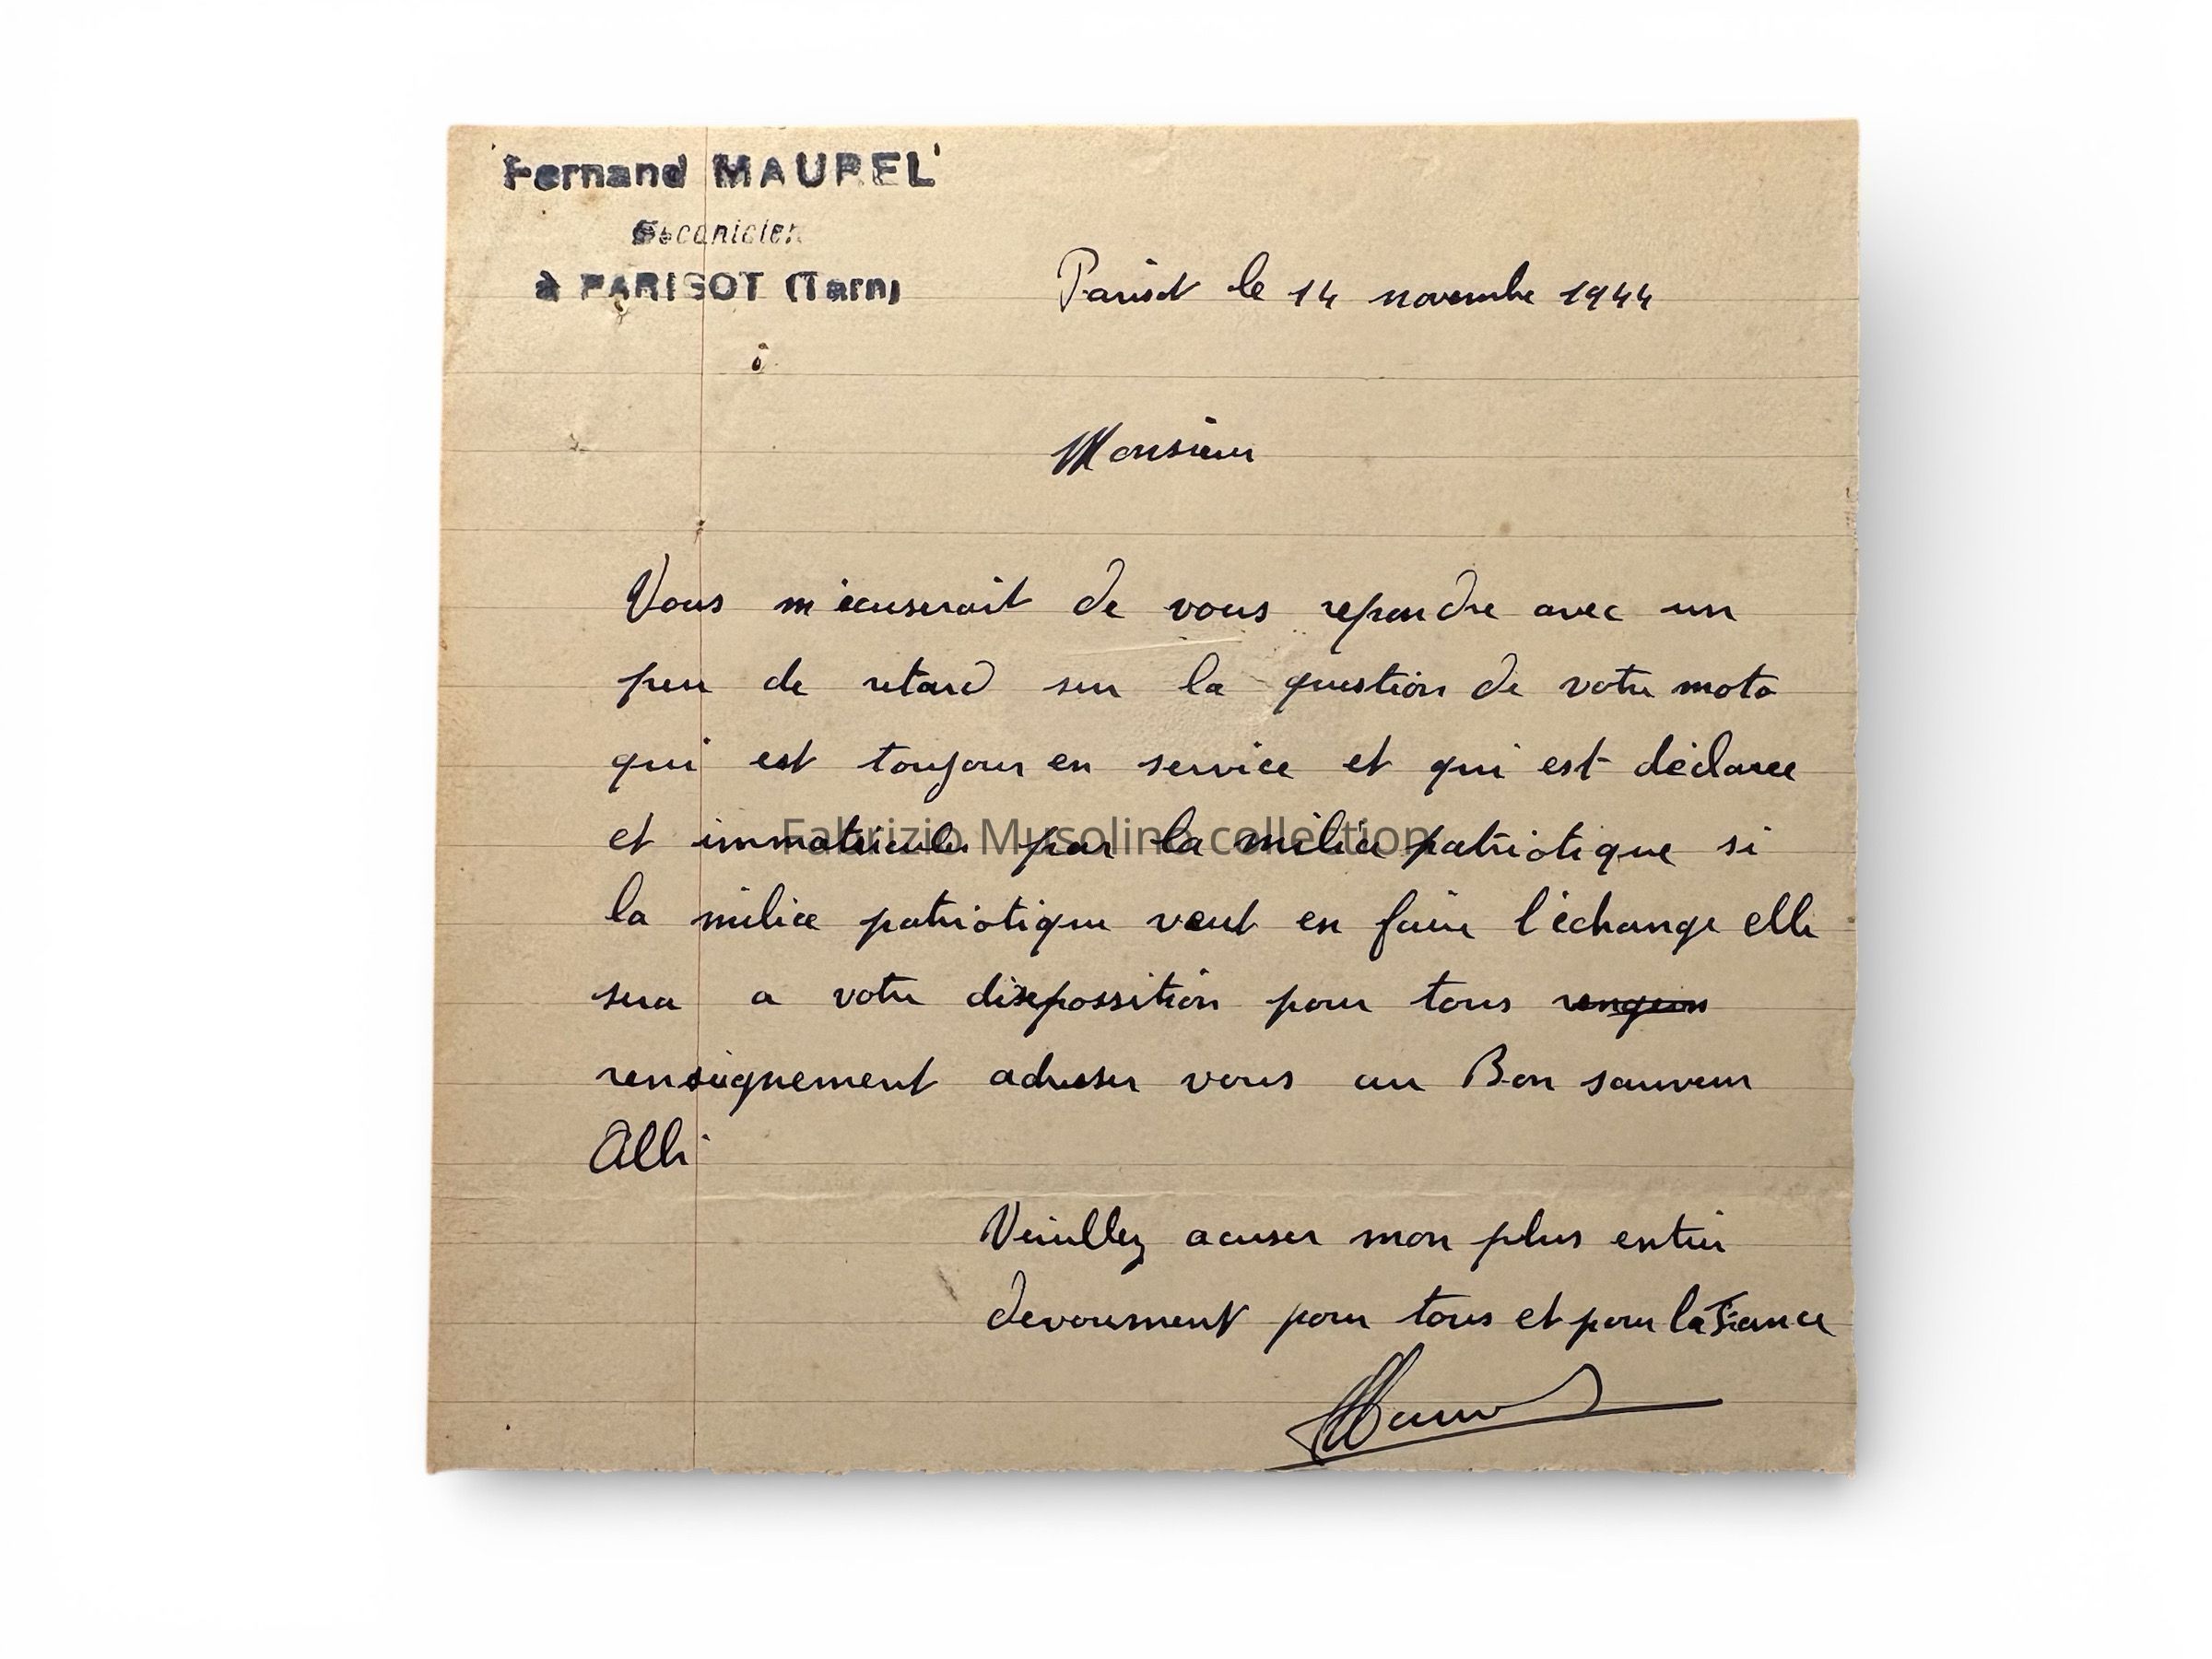 Fernand MAUREL
Mécanicien
à PARISOT (Tarn)
Parisot le 14 novembre 1944
Monsieur
Vous m'écuserait de vous repondre avec un
peu de retard sur la question de votre moto
qui est toujour en service et qui est déclaree
et immatricule par la milice patriotique si
Fabrizio Musolino collection
la milice patriotique veut en faire l'échange elle
sera a votre dispossition pour tous
renseignement adresser vous au Bon sauveur
Albi
Veuillez acuser mon plus entier
devoument pour tous et pour la France